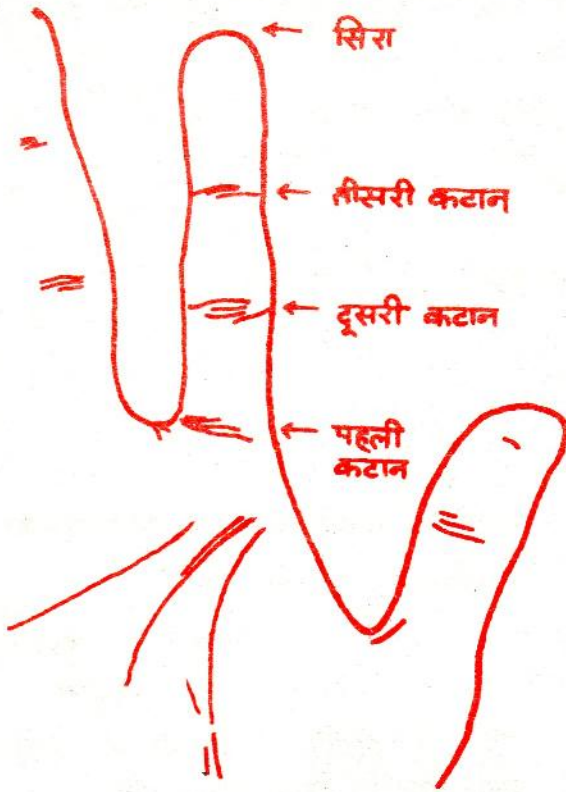 सिरा
तीसरी कटान
दूसरी कटान
पहली
कटान